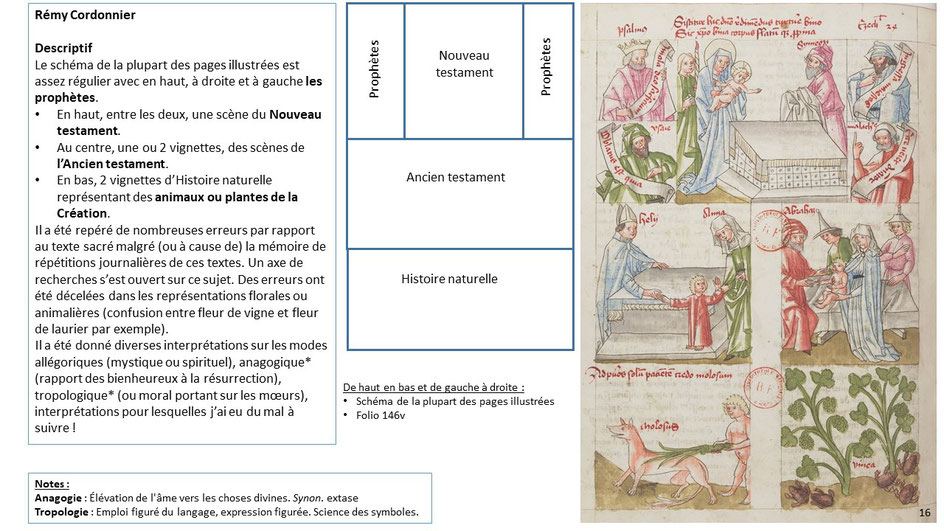 Rémy Cordonnier
Descriptif
Le schéma de la plupart des pages illustrées est
assez régulier avec en haut, à droite et à gauche les
prophètes.
• En haut, entre les deux, une scène du Nouveau
testament.
• Au centre, une ou 2 vignettes, des scènes de
l’Ancien testament.
• En bas, 2 vignettes d’Histoire naturelle
représentant des animaux ou plantes de la
Création.
Il a été repéré de nombreuses erreurs par rapport
au texte sacré malgré (ou à cause de) la mémoire de
répétitions journalières de ces textes. Un axe de
recherches s’est ouvert sur ce sujet. Des erreurs ont
été décelées dans les représentations florales ou
animalières (confusion entre fleur de vigne et fleur
de laurier par exemple).
Il a été donné diverses interprétations sur les modes
allégoriques (mystique ou spirituel), anagogique*
(rapport des bienheureux à la résurrection),
tropologique* (ou moral portant sur les mœurs),
interprétations pour lesquelles j’ai eu du mal à
suivre !
Notes :
Anagogie : Élévation de l'âme vers les choses divines. Synon. extase
Tropologie : Emploi figuré du langage, expression figurée. Science des symboles.
Prophètes
Nouveau
testament
Prophètes
Ancien testament
Histoire naturelle
De haut en bas et de gauche à droite :
• Schéma de la plupart des pages illustrées
• Folio 146v
ysaie
hely
Anna
Abraham
molosus
vinea
16